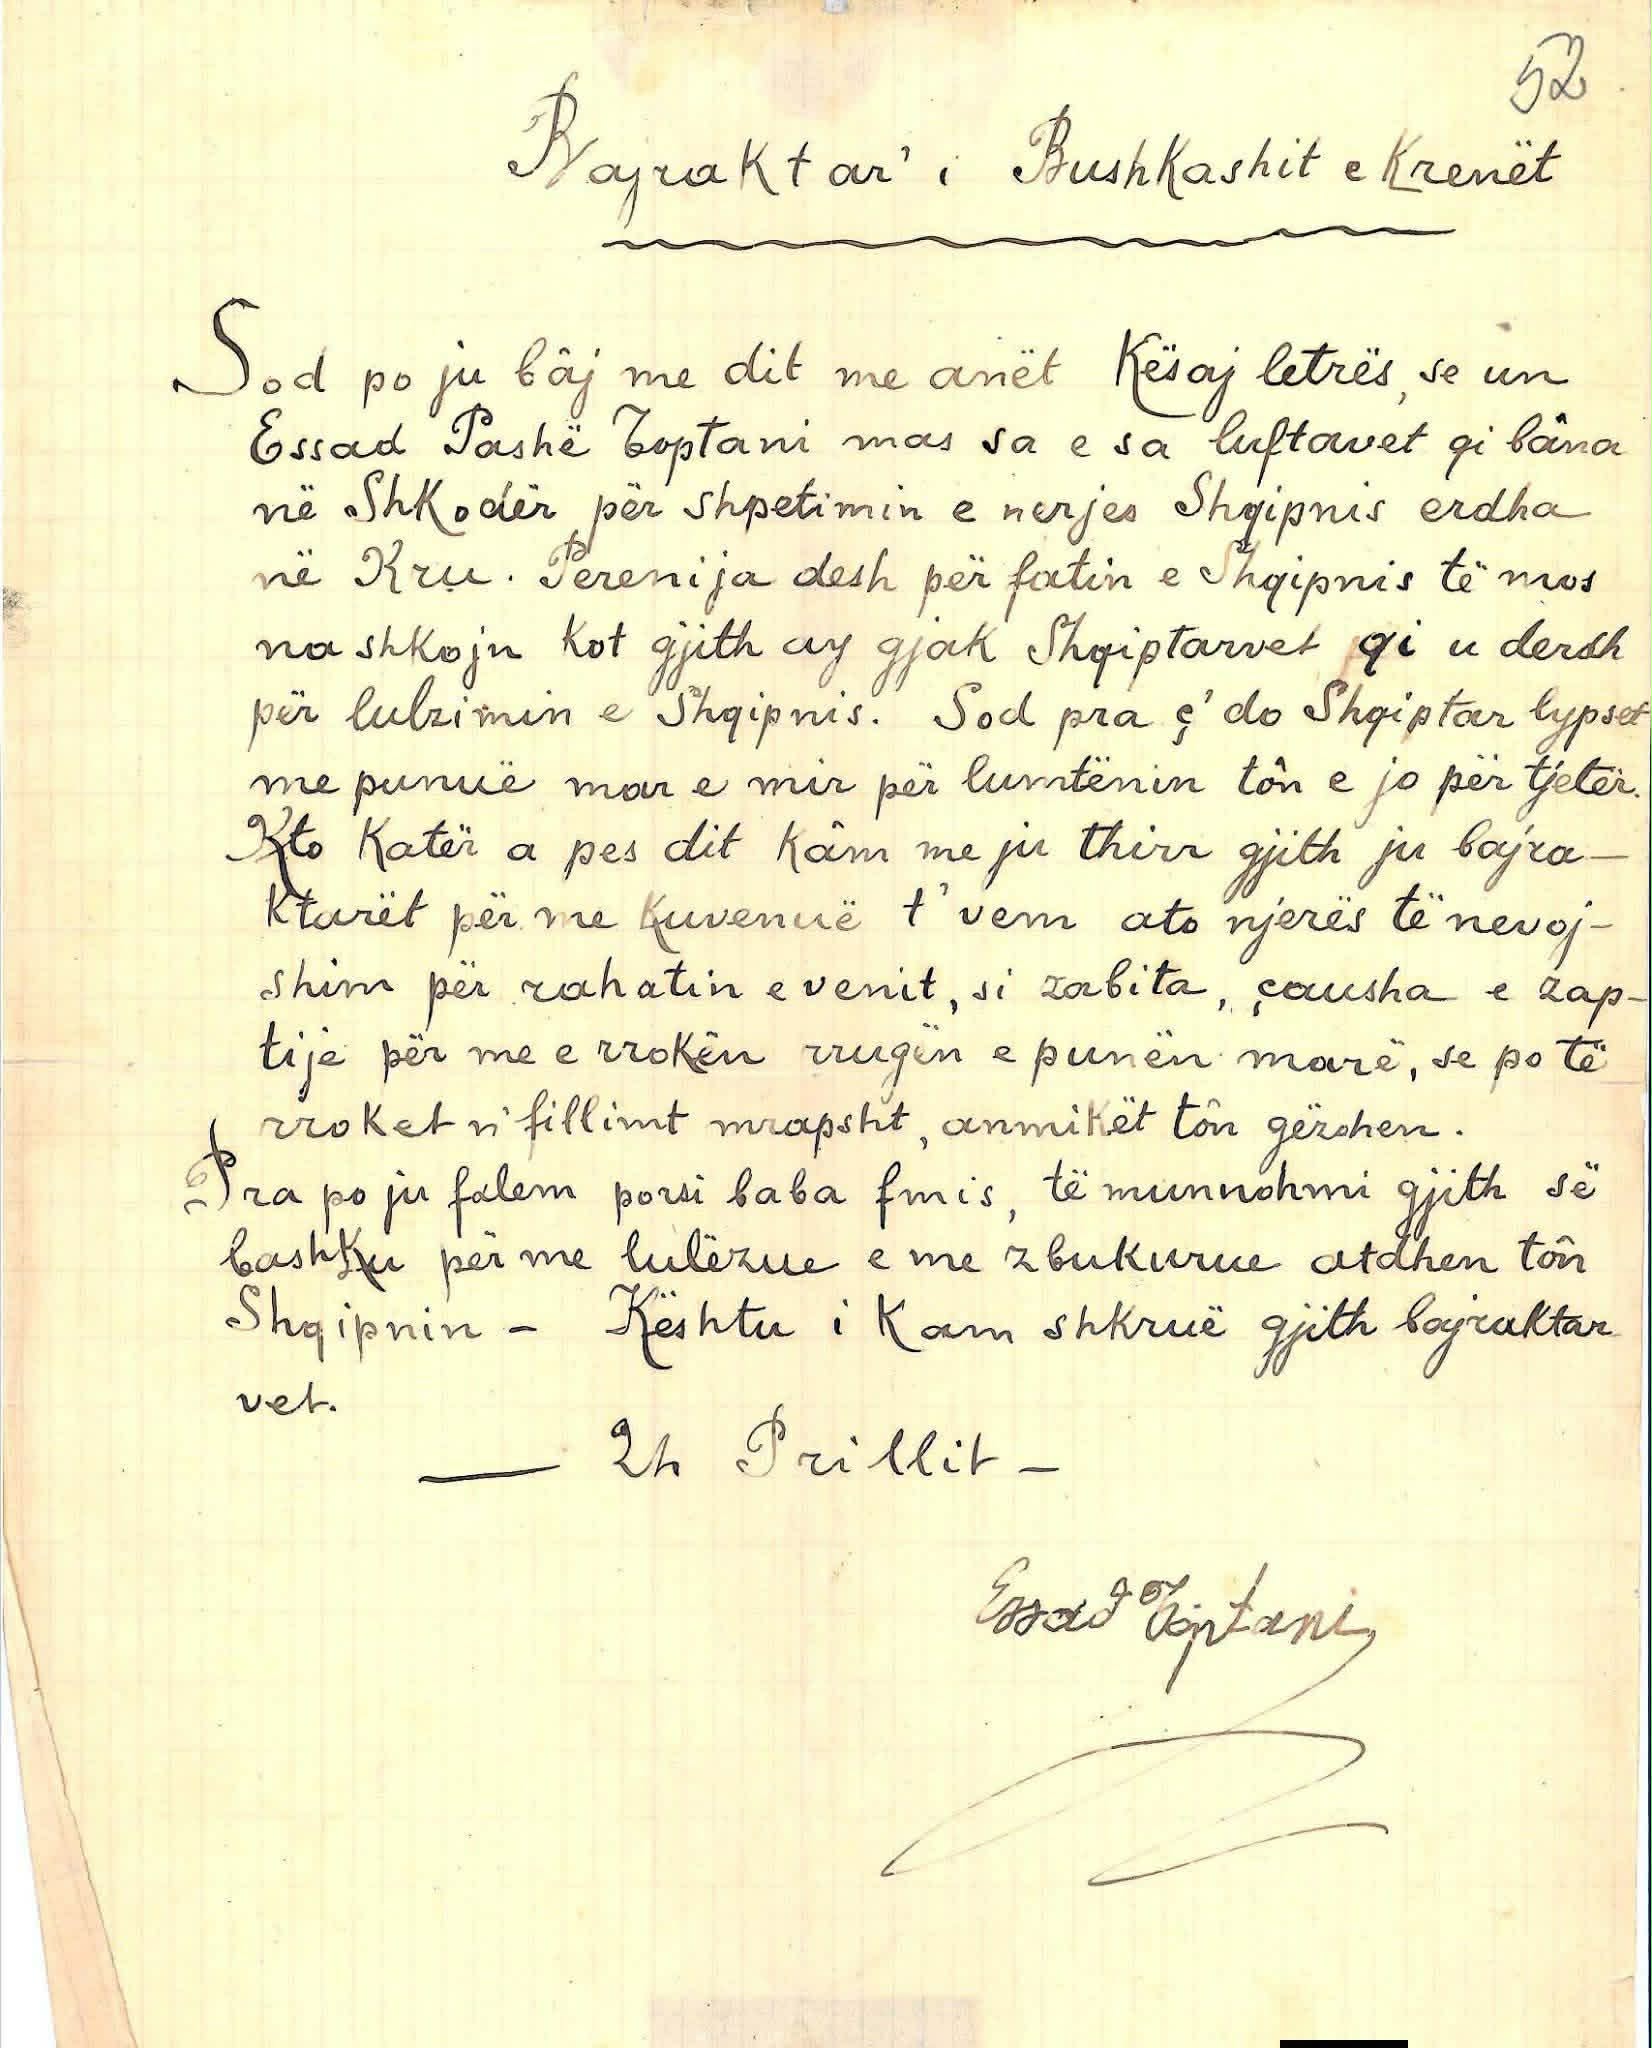 52
Bajraktar' i Bushkashit e Krenët
Sod po ju bâj me dit me anët Kësaj letrës, se un
Essad Pashë Toptani mas sa e sa luftavet qi bâna
në Shkodër për shpetimin e nerjes Shqipnis erdha
në Kru. Perenija desh për fatin e Shqipnis të mos
na shkojn kot gjith ay gjak Shqiptarvet qi u dersh
për lulzimin e Shqipnis. Sod pra ç'do Shqiptar lypset
me punuë mar e mir për lumtënin tôn e jo për tjetër.
Kto Katër a pes dit kâm me ju thirr gjith ju bajra-
ktarët për me kuvenuë t'vem ato njerës të nevoj-
shim për rahatin e venit, si zabita, çausha e zap-
tije për me e rrokën rrugën e punën marë, se po të
rroket n'fillimt mrapsht, anmikët tôn gëzohen.
Pra po ju falem porsi baba fmis, të munnohmi gjith së
bashku për me lulëzue e me zbukurue atdhen tôn
Shqipnin - Kështu i Kam shkruë gjith bajraktar
vet.
— 2h Prillit -
Essad Toptani